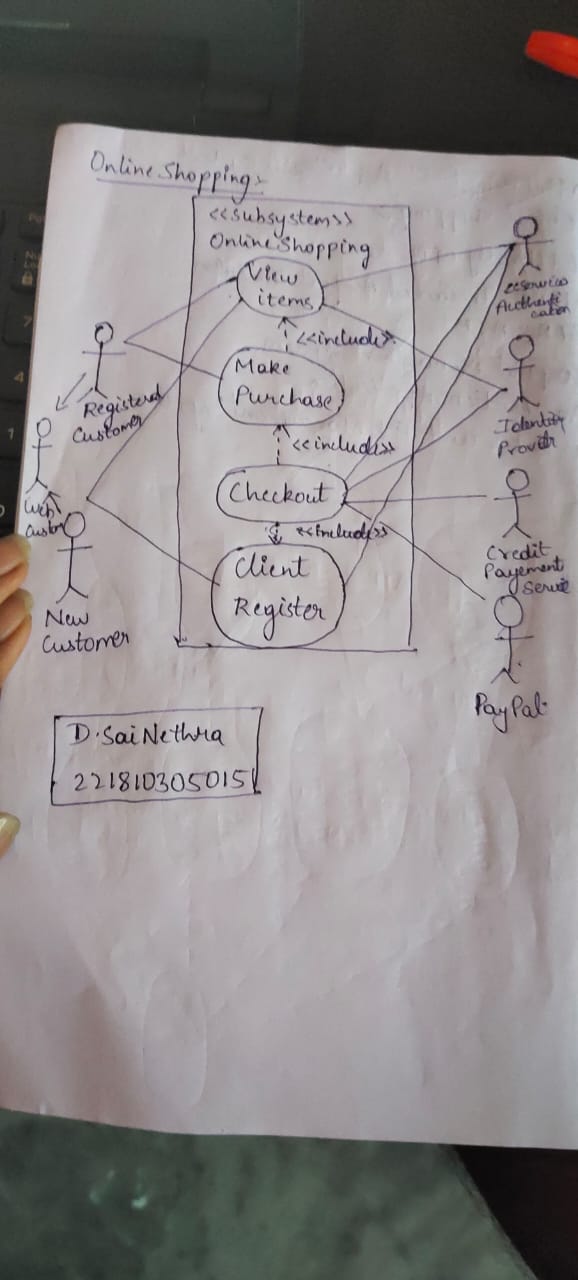 Online Shopping:-
<<subsystem>>
Online Shopping
View
items
<<include>>
Make
Purchase
<<include>>
Checkout
<<include>>
Client
Register
Registered
Customer
Web
Custom
New
Customer
<<service
Authenti
cation
Identity
Provider
Credit
Payement
Service
PayPal
D.Sai Nethra
221810305015